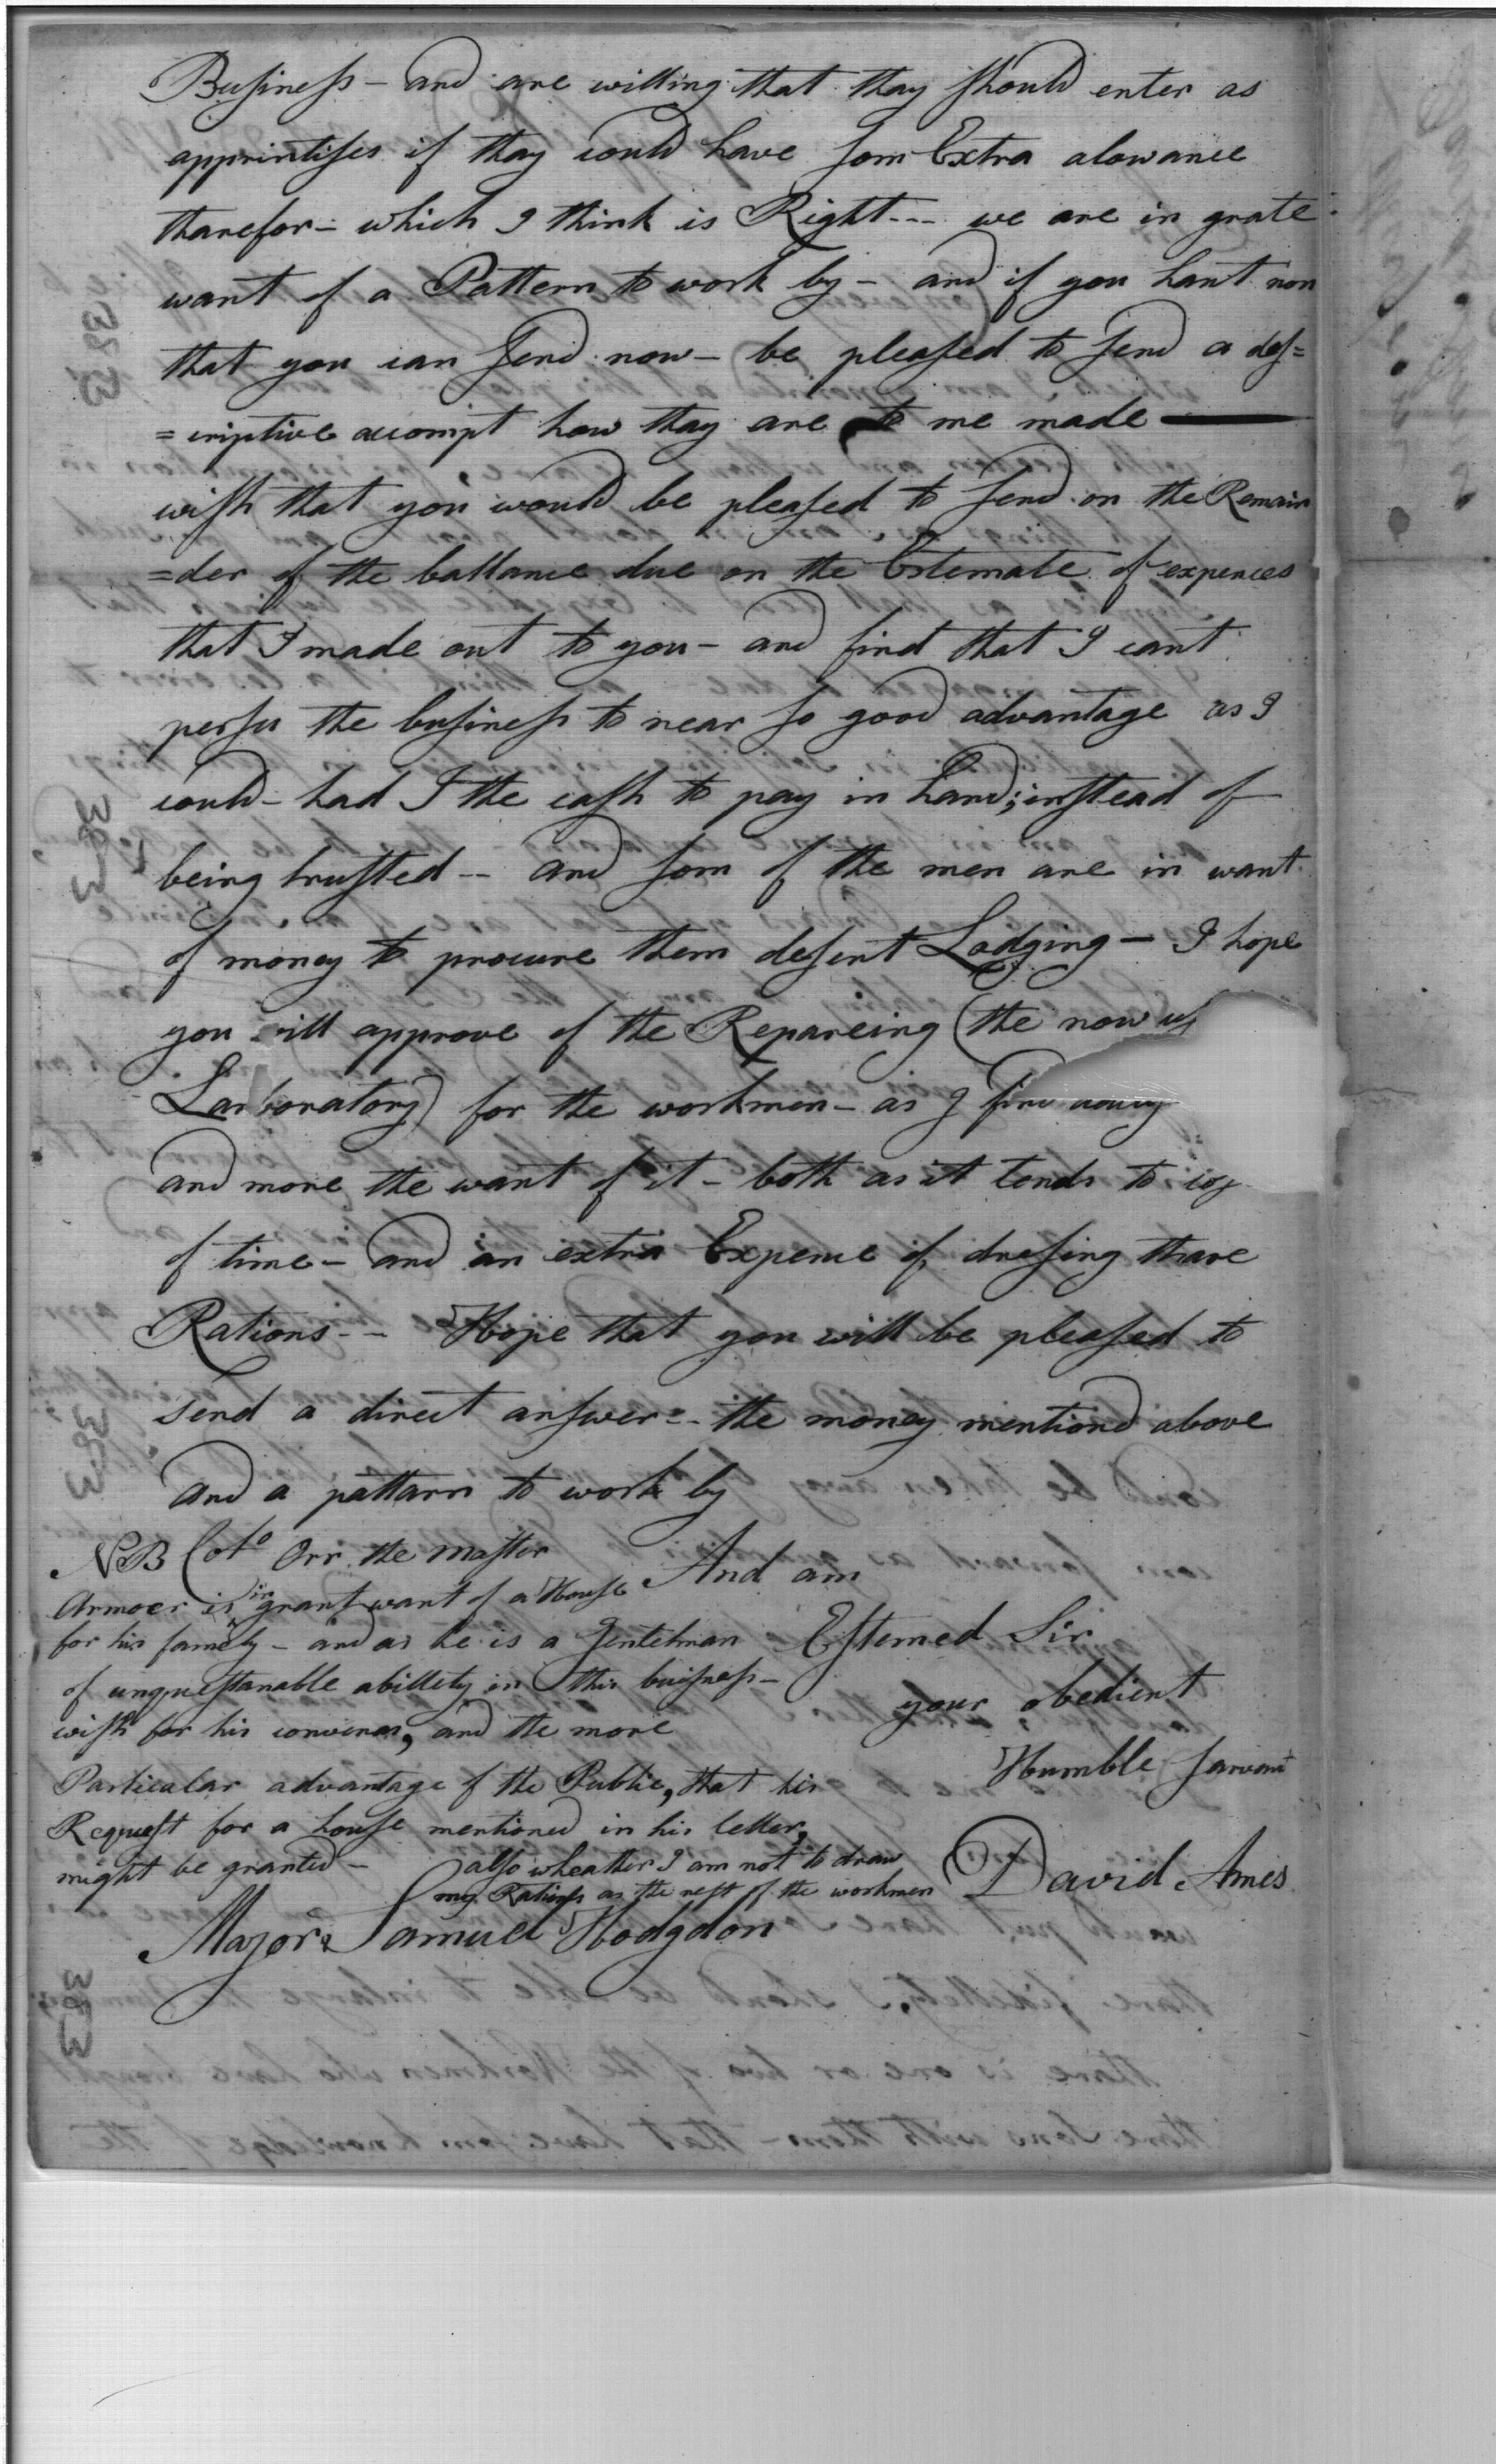 Business – and are willing that thay should enter as
apprintises if thay could have som Extra alowance
tharefor – which I think is Right --- we are in grate
want of a Pattern to work by – and if you hant non
that you can send now – be pleased to send a des=
=criptive accompt how thay are to me made —
wish that you would be pleased to send on the Remain
=der of the ballance due on the Estemate of expences
that I made out to you – and find that I cant
persu the business to near so good advantage as I
could – had I the cash to pay in hand; instead of
being trusted -- and som of the men are in want
of money to procure them desent Lodging – I hope
you will approve of the Repareing (the now
Larboratory) for the workmen – as I find
and more the want of it – both as it tends to
of time – and an extra Expence of dressing thare
Rations -- Hope that you will be pleased to
send a direct answer -- the money mentiond above
and a pattarn to work by
And am
Estemed Sir
your obedient
Humble Sarvant
David Ames
NB Orr the Master
Armoer is in grant want of a House
for his famely – and as he is a Gentelman
of unquestanable abillety in this buisness –
wish for his and the more
Particalar advantage of the Public, that his
Request for a house mentioned in his letter,
might be granted –
also wheather I am not to draw
my Rations as the rest of the workmen
Major Samuel Hodgdon
3383
3383
3383
3383